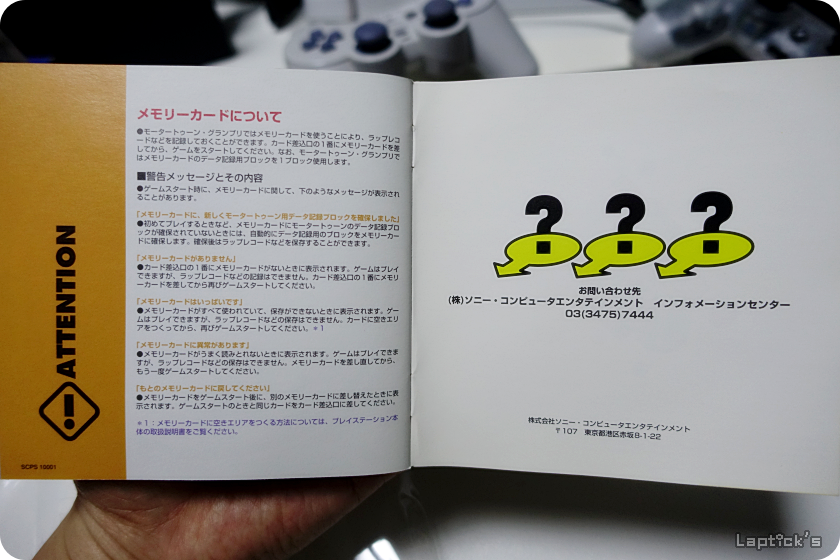 メモリーカードについて
●モータートゥーン・グランプリではメモリーカードを使うことにより、ラップレコ
ードなどを記録しておくことができます。カード差込口の1番にメモリーカードを差
してから、ゲームをスタートしてください。なお、モータートゥーン・グランプリで
はメモリーカードのデータ記録用ブロックを1ブロック使用します。
■警告メッセージとその内容
●ゲームスタート時に、メモリーカードに関して、下のようなメッセージが表示され
ることがあります。
「メモリーカードに、新しくモータートゥーン用データ記録ブロックを確保しました」
●初めてプレイするときなど、メモリーカードにモータートゥーンのデータ記録ブロ
ックが確保されていないときには、自動的にデータ記録用のブロックをメモリーカー
ドに確保します。確保後はラップレコードなどを保存することができます。
「メモリーカードがありません」
●カード差込口の1番にメモリーカードがないときに表示されます。ゲームはプレイ
できますが、ラップレコードなどの記録はできません。カード差込口の1番にメモリ
ーカードを差してから再びゲームスタートしてください。
「メモリーカードはいっぱいです」
●メモリーカードがすべて使われていて、保存ができないときに表示されます。ゲー
ムはプレイできますが、ラップレコードなどの保存はできません。カードに空きエリ
アをつくってから、再びゲームスタートしてください。＊1
「メモリーカードに異常があります」
●メモリーカードがうまく読みとれないときに表示されます。ゲームはプレイできま
すが、ラップレコードなどの保存はできません。メモリーカードを差し直してから、
もう一度ゲームスタートしてください。
「もとのメモリーカードに戻してください」
●メモリーカードをゲームスタート後に、別のメモリーカードに差し替えたときに表
示されます。ゲームスタートのときと同じカードをカード差込口に差してください。
＊1：メモリーカードに空きエリアをつくる方法については、プレイステーション本
体の取扱説明書をご覧ください。
ATTENTION
SCPS 10001
???
お問い合わせ先
(株)ソニー・コンピュータエンタテインメント　インフォメーションセンター
03(3475)7444
株式会社ソニー・コンピュータエンタテインメント
〒107　東京都港区赤坂8-1-22
Laptick's